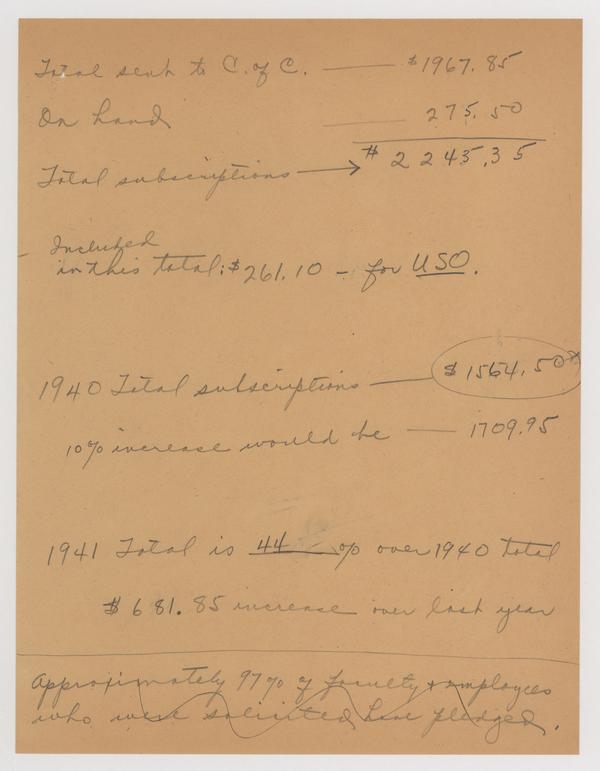 Total sent to C. of C. — $1967.85
On hand — 275.50
Total subscriptions → $2245.35
Included
in this total: $261.10 - for USO.
1940 Total subscriptions — $1564.50*
10% increase would be — 1709.95
1941 Total is 44 % over 1940 total
$681.85 increase over last year
Approximately 97% of faculty + employees
who were solicited have pledged.